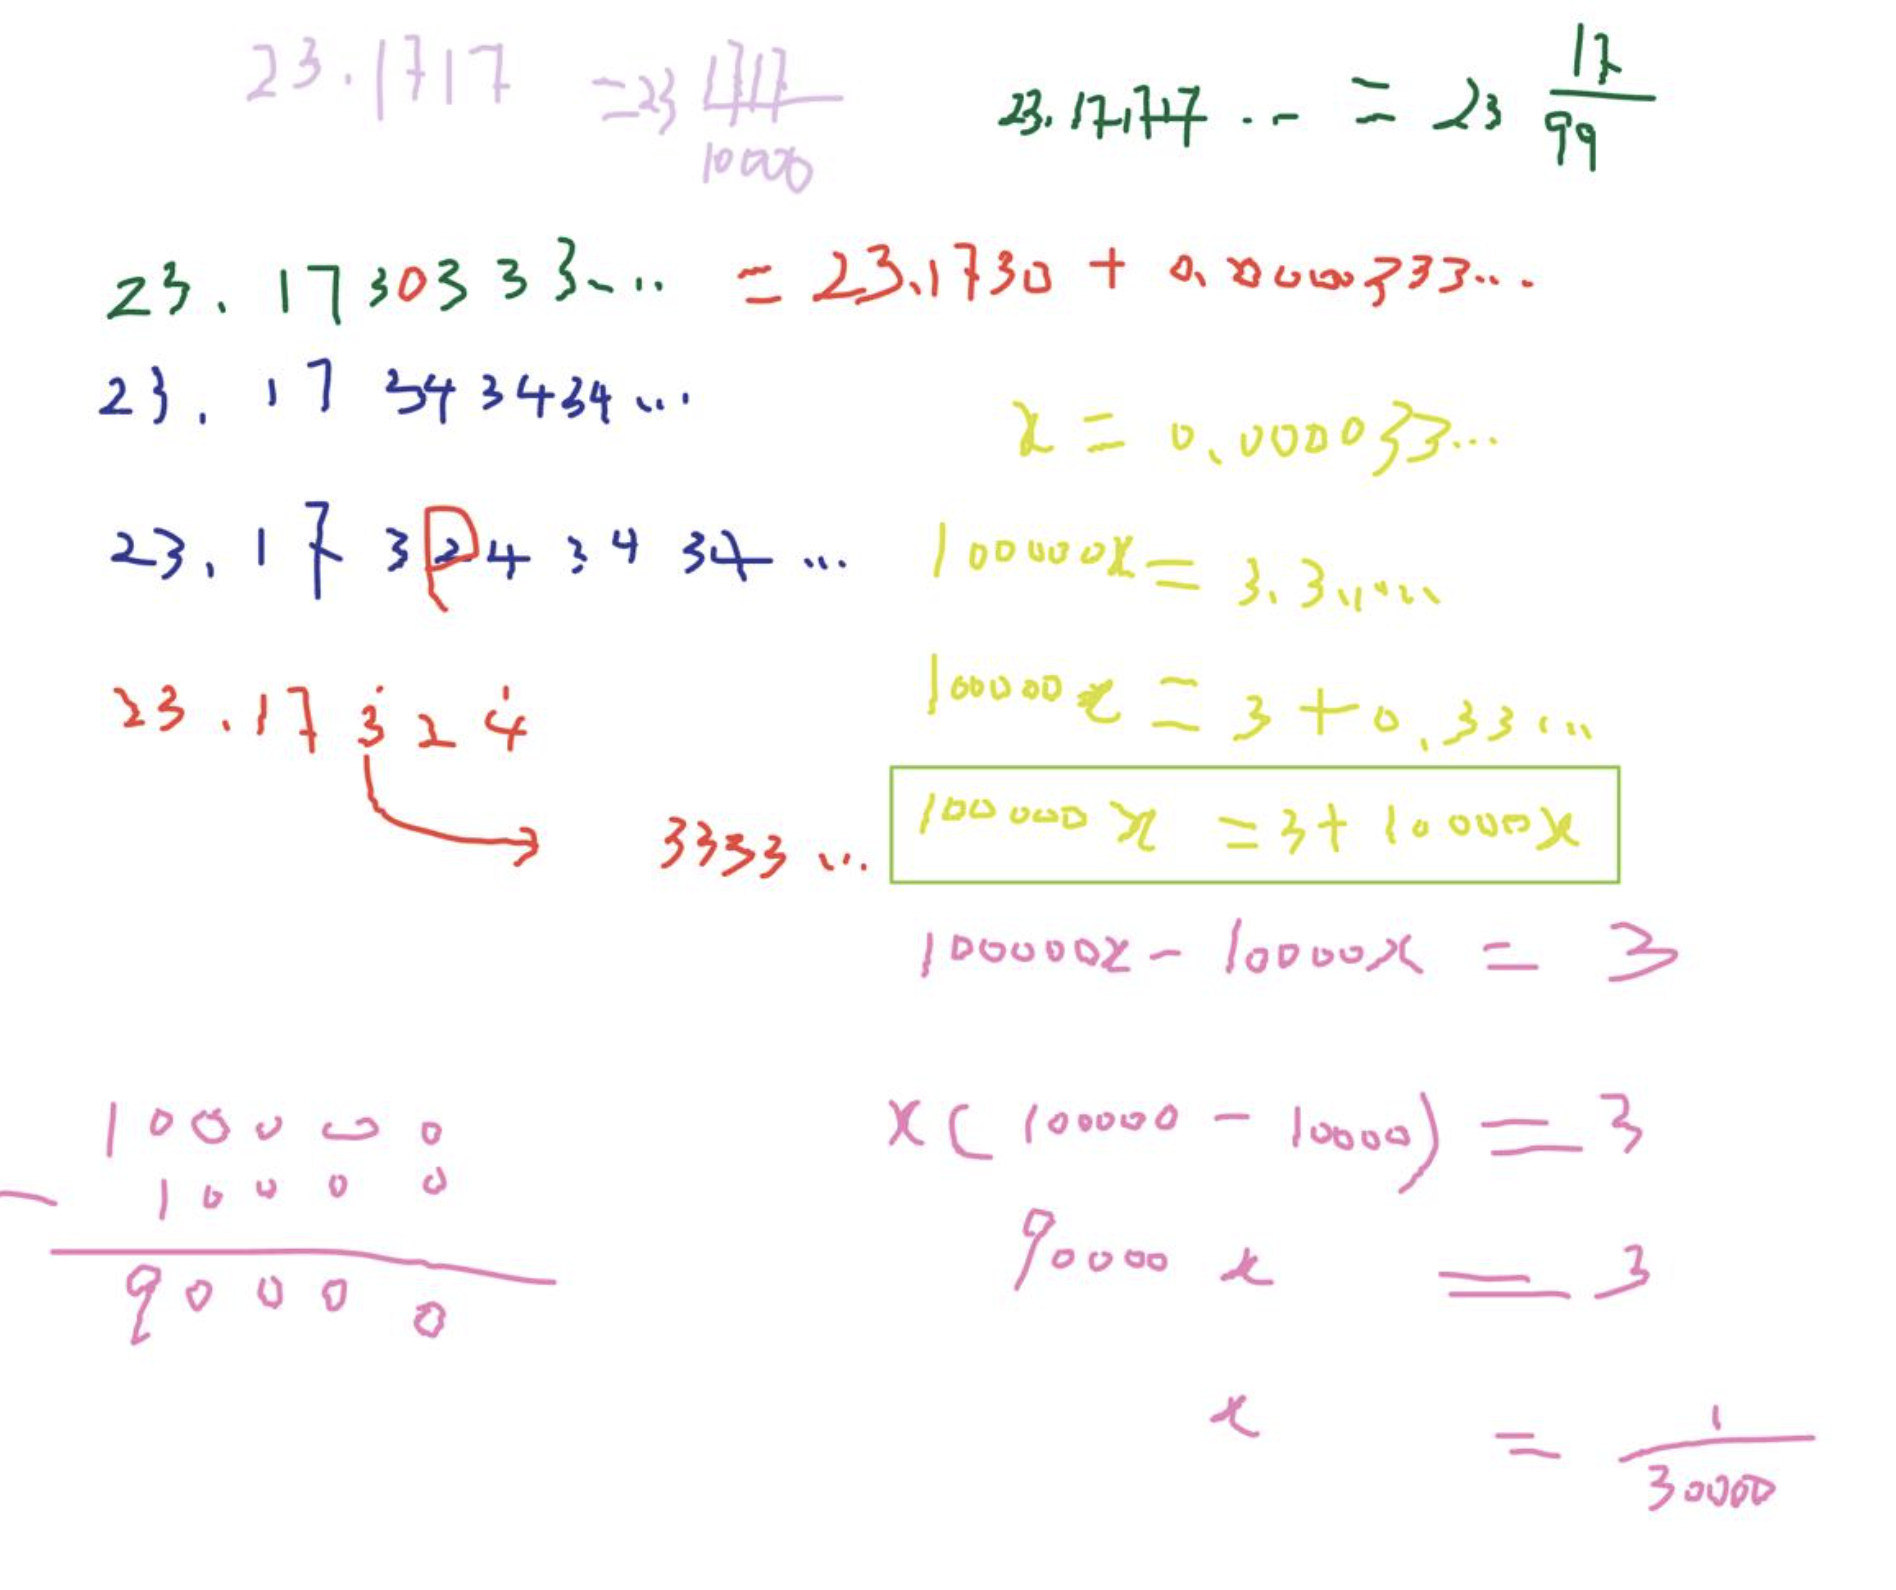 23.1717 = 23 1717/10000
23.171717... = 23 17/99
23.1730333... = 23.1730 + 0.0000333...
23.17343434...
x = 0.000033...
23.173243434...
100000x = 3.3......
100000x = 3 + 0.33...
23.173̇24̇
3333...
100000x = 3 + 10000x
100000x - 10000x = 3
100000
x(100000 - 10000) = 3
- 10000
90000x = 3
90000
x = 1/30000